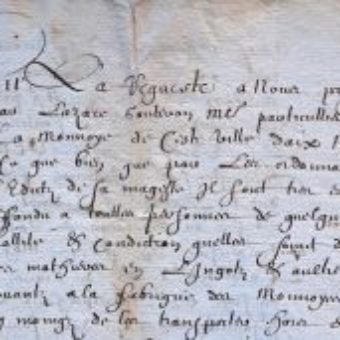 Sur La Requeste a Nous pr
Lazare hontvan Me particullier
La Monnoye de Ceste ville d'aix
Ce que bien que par Les ordonna
Edictz de sa mageste Il soit tres e
ffandu a touttes personnes de quelque
allite & condiction quelles soint d
mathieres en Lingotz & aultre
vantz a la fabrique des Monnoyes
moingz de les transporter hors e